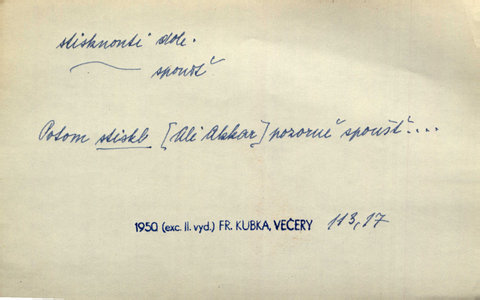 stisknouti dole.
spoušť
Potom stiskl [Ali Alskar] pozorně spoušť....
1950 (exc. II. vyd.) FR. KUBKA, VEČERY 113,17